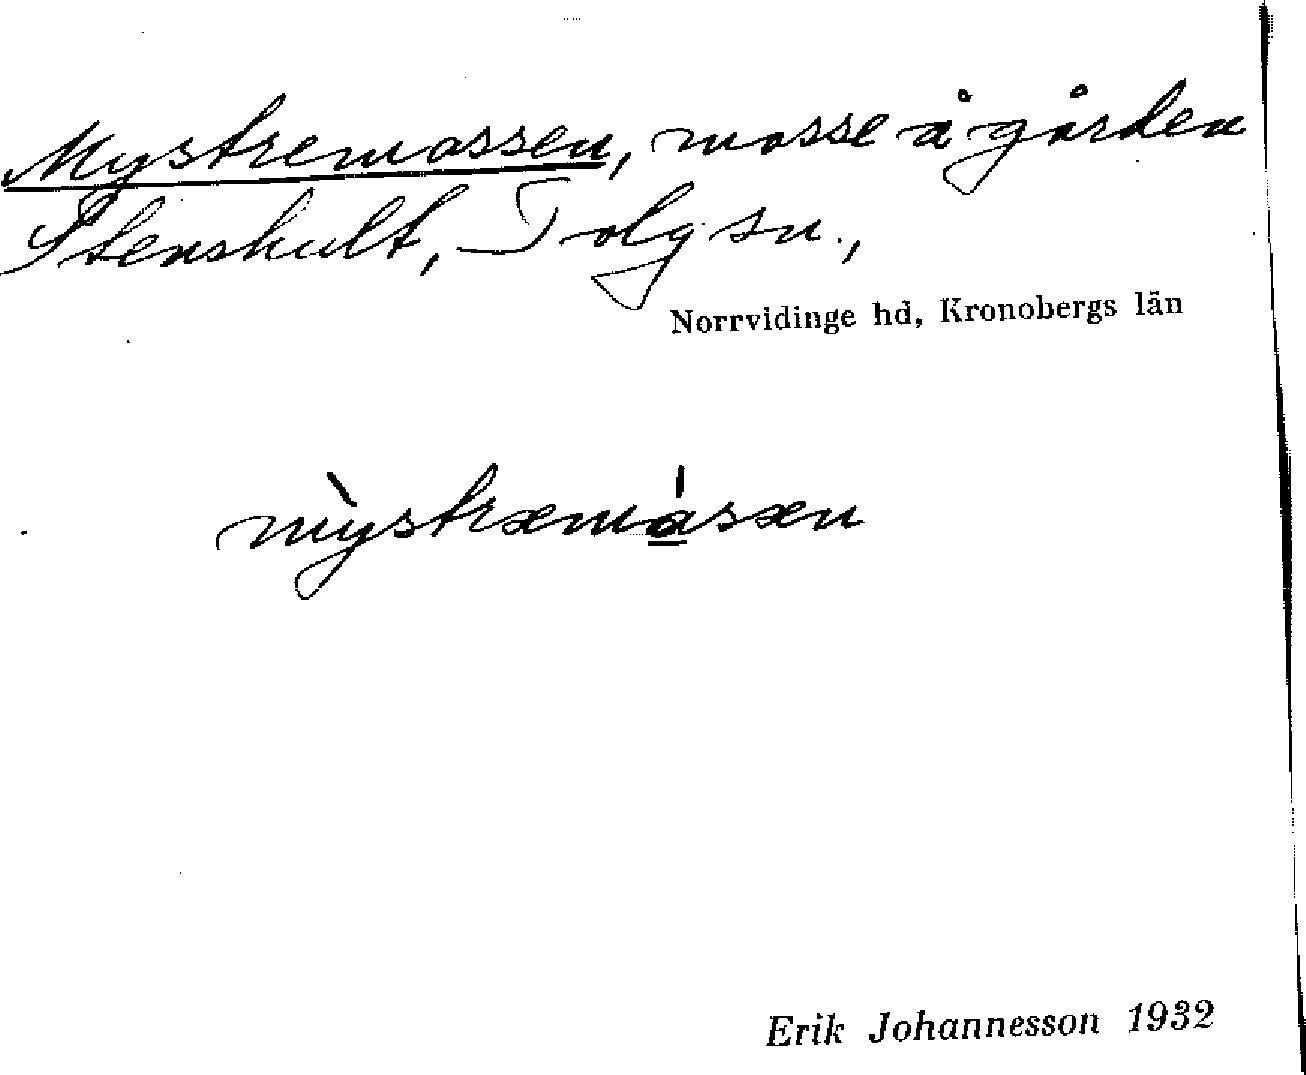 Mystremossen, mosse å gården
Stenshult, Tolg sn.,
Norrvidinge hd, Kronobergs län
mỳstræmásæn
Erik Johannesson 1932